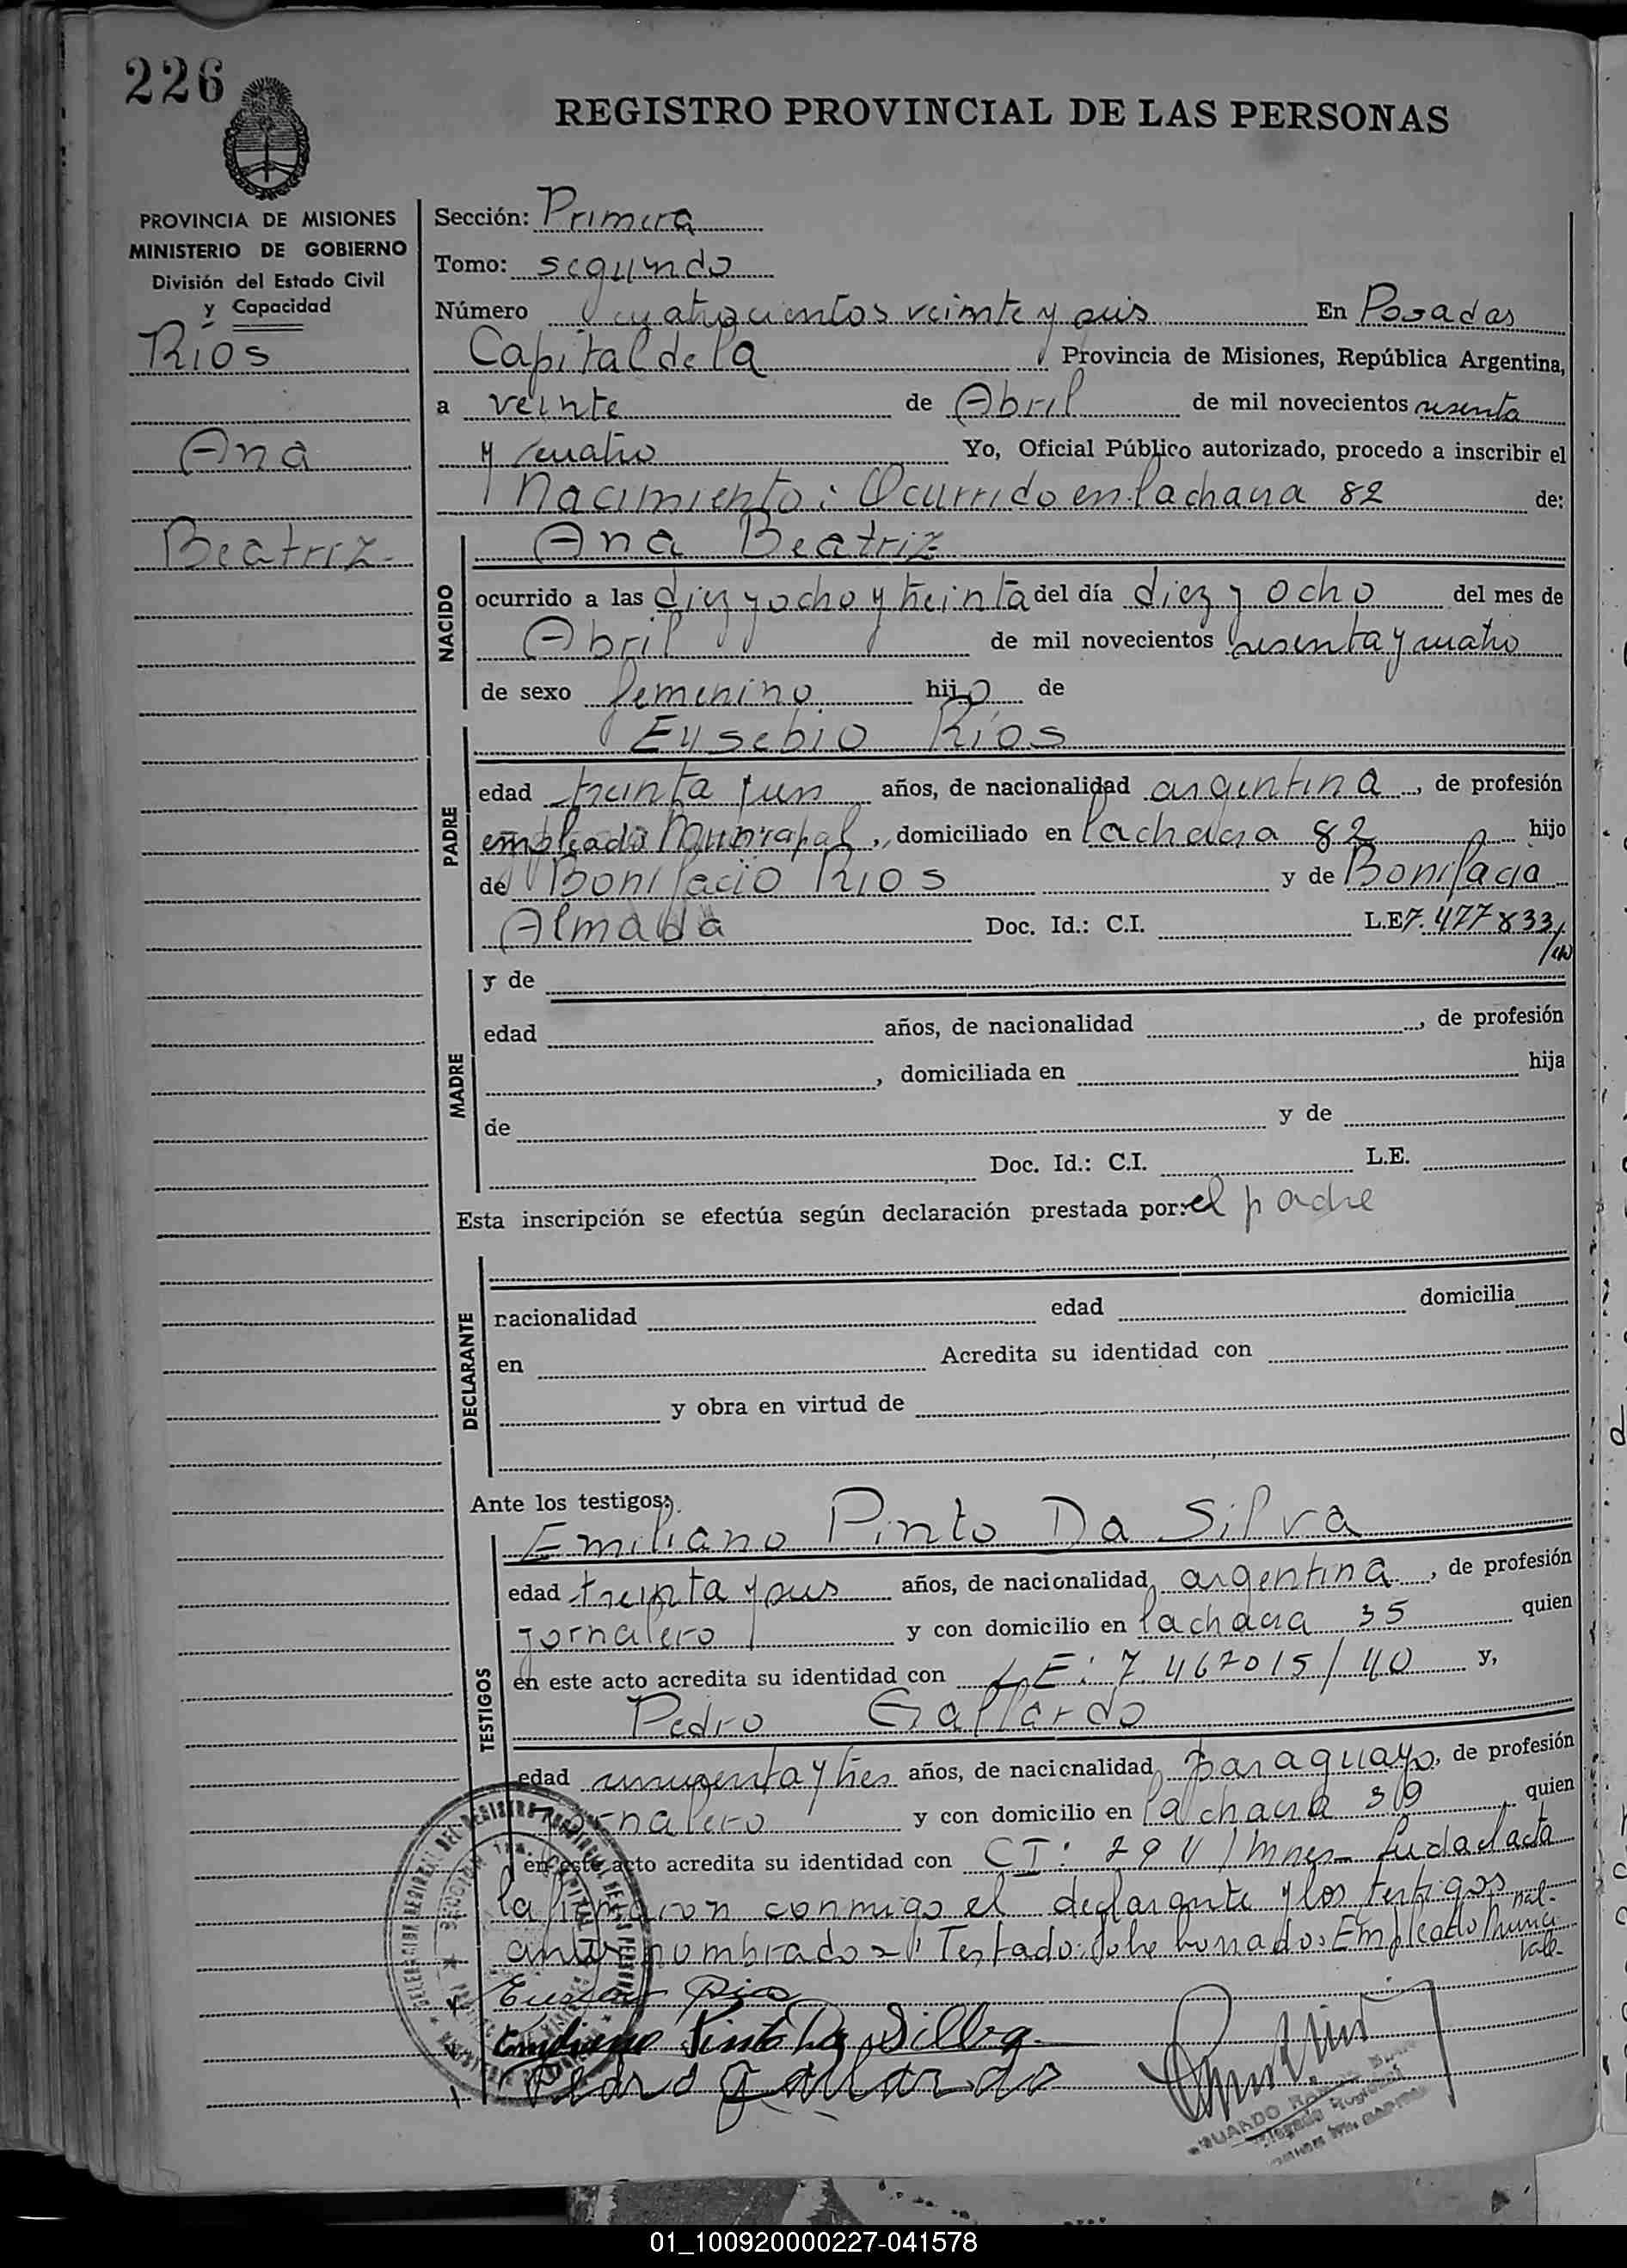 226
REGISTRO PROVINCIAL DE LAS PERSONAS
PROVINCIA DE MISIONES
MINISTERIO DE GOBIERNO
División del Estado Civil
y Capacidad
Ríos
Ana
Beatriz
Sección: Primera
Tomo: segundo
Número cuatrocientos veinte y seis En Posadas
Capital de la Provincia de Misiones, República Argentina,
a veinte de Abril de mil novecientos sesenta
y cuatro Yo, Oficial Público autorizado, procedo a inscribir el
Nacimiento: Ocurrido en la chacra 82 de:
NACIDO
Ana Beatriz
ocurrido a las diez y ocho y treinta del día diez y ocho del mes de
Abril de mil novecientos sesenta y cuatro
de sexo femenino hijo de
PADRE
Eusebio Ríos
edad treinta y un años, de nacionalidad argentina, de profesión
empleado Municipal, domiciliado en la chacra 82 hijo
de Bonifacio Rios y de Bonifacia
Almada Doc. Id.: C.I. L.E 7.477833/
MADRE
y de
edad años, de nacionalidad , de profesión
, domiciliada en hija
de y de
Doc. Id.: C.I. L.E.
Esta inscripción se efectúa según declaración prestada por: el padre
DECLARANTE
nacionalidad edad domicilia
en Acredita su identidad con
y obra en virtud de
Ante los testigos:
TESTIGOS
Emiliano Pinto Da Silva
edad treinta y seis años, de nacionalidad argentina, de profesión
jornalero y con domicilio en la chacra 35 quien
en este acto acredita su identidad con L.E: 7.467015/40 y,
Pedro Gallardo
edad cincuenta y tres años, de nacicnalidad paraguayo, de profesión
jornalero y con domicilio en la chacra 39 quien
en este acto acredita su identidad con CI: 2911/Mnes Leida el acta
la firmaron conmigo el declarante y los testigos
antes nombrados, Testado: Sobre borrado: Empleado Munici
pal- Vale-
Rios
Emiliano Pinto Da Silva
Pedro Gallardo
01_100920000227-041578